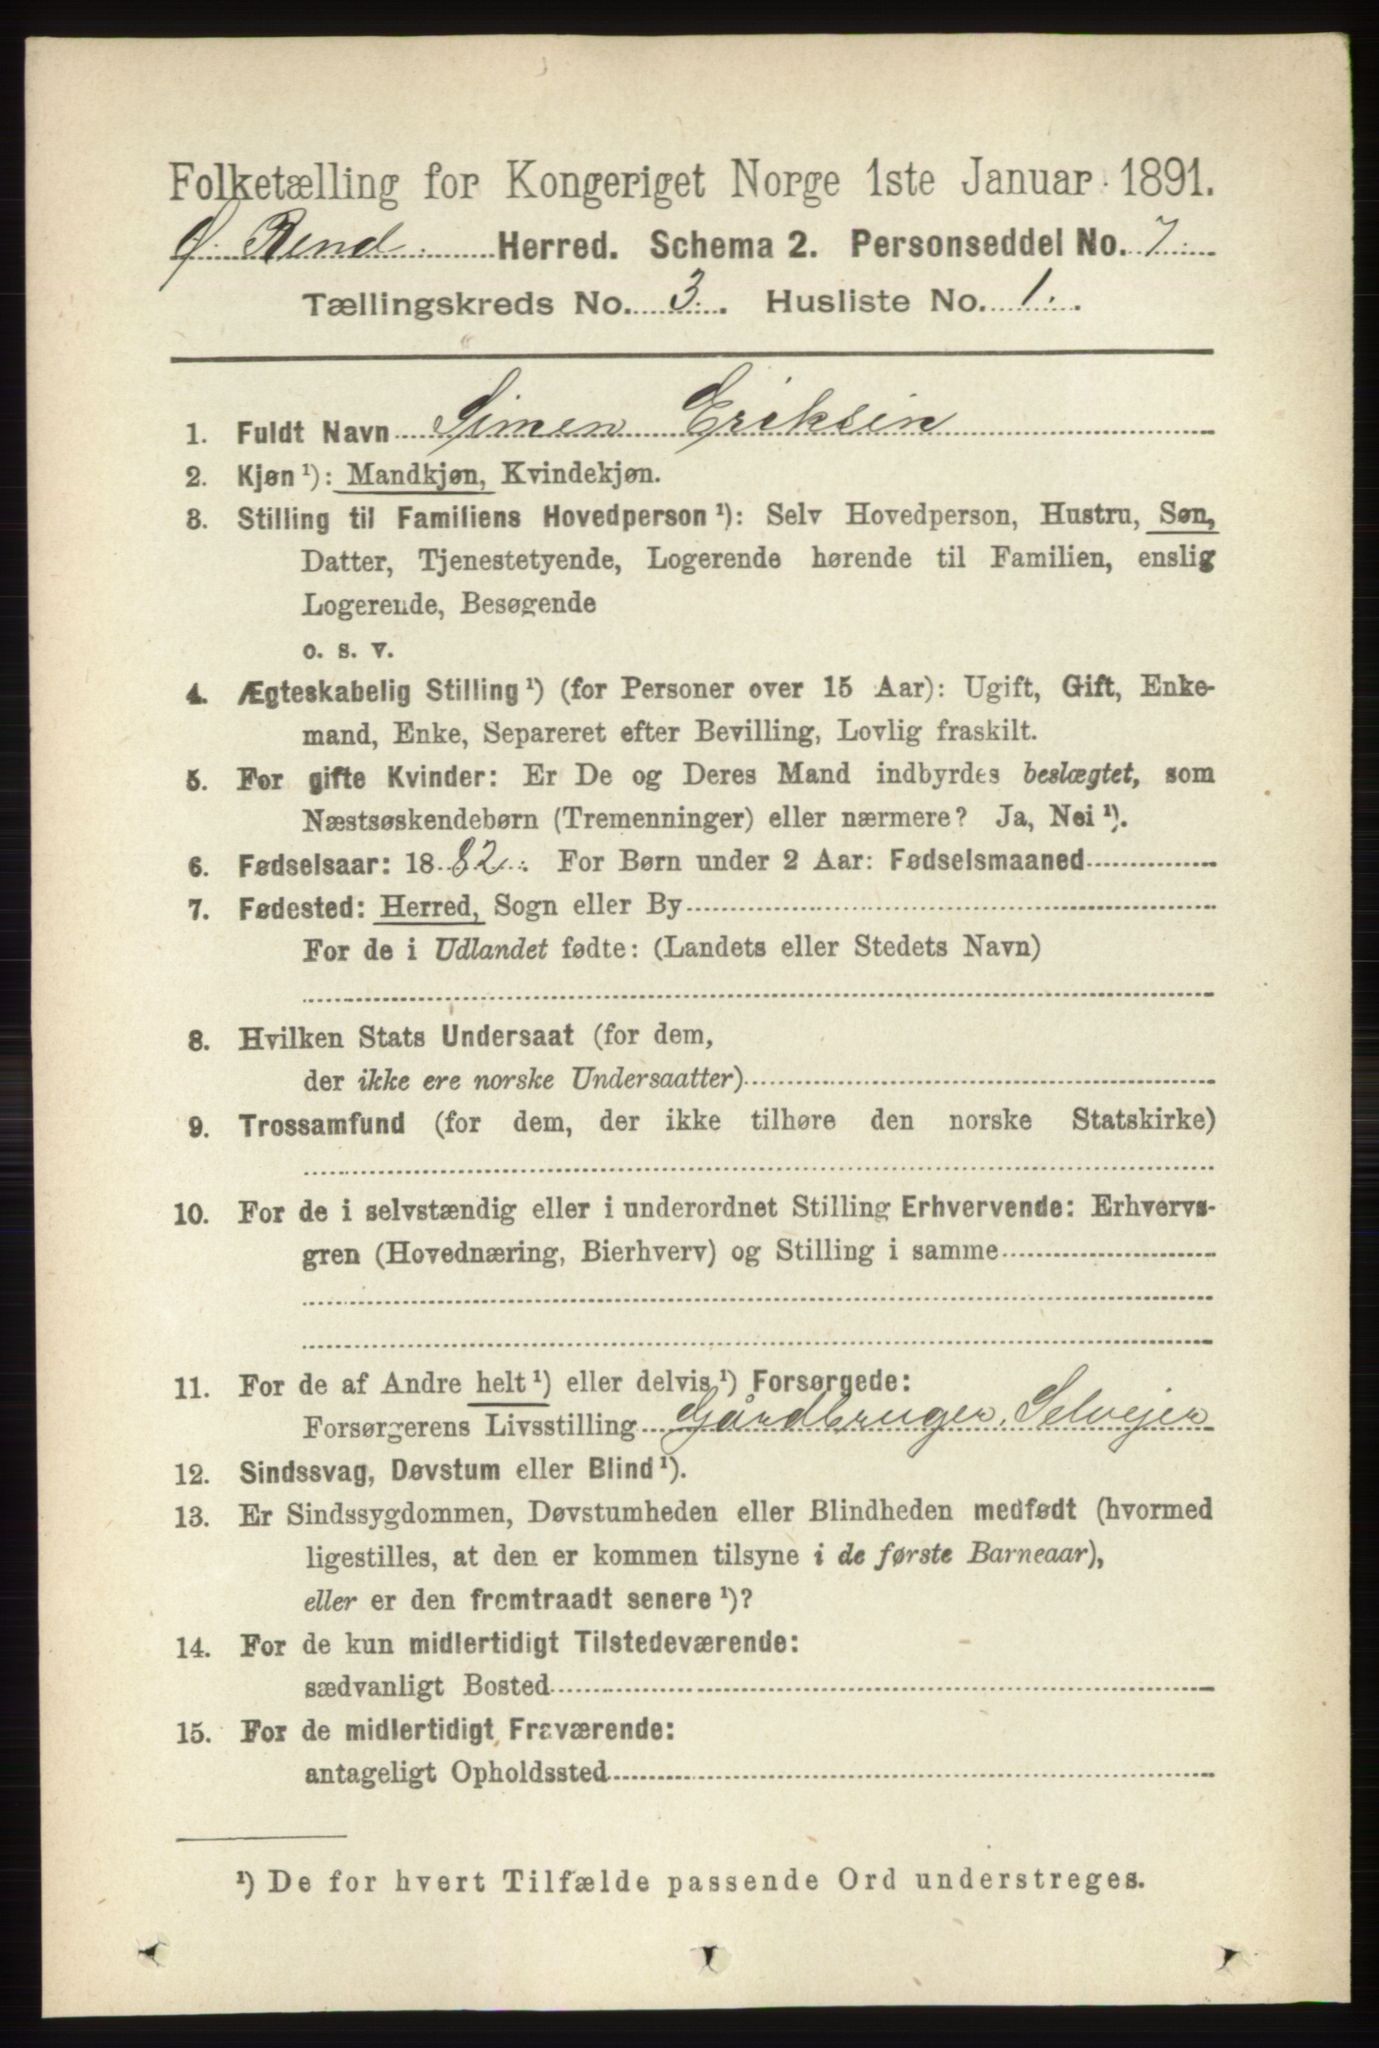 Folketælling for Kongeriget Norge 1ste Januar 1891.
Ø. Rend. Herred. Schema 2. Personseddel No. 7.
Tællingskreds No. 3. Husliste No. 1.
1. Fuldt Navn Simen Eriksen
2. Kjøn ¹): Mandkjøn, Kvindekjøn.
3. Stilling til Familiens Hovedperson ¹): Selv Hovedperson, Hustru, Søn,
Datter, Tjenestetyende, Logerende hørende til Familien, enslig
Logerende, Besøgende
o. s. v.
4. Ægteskabelig Stilling ¹) (for Personer over 15 Aar): Ugift, Gift, Enke-
mand, Enke, Separeret efter Bevilling, Lovlig fraskilt.
5. For gifte Kvinder: Er De og Deres Mand indbyrdes beslægtet, som
Næstsøskendebørn (Tremenninger) eller nærmere? Ja, Nei ¹).
6. Fødselsaar: 1882. For Børn under 2 Aar: Fødselsmaaned
7. Fødested: Herred, Sogn eller By
For de i Udlandet fødte: (Landets eller Stedets Navn)
8. Hvilken Stats Undersaat (for dem,
der ikke ere norske Undersaatter)
9. Trossamfund (for dem, der ikke tilhøre den norske Statskirke)
10. For de i selvstændig eller i underordnet Stilling Erhvervende: Erhvervs-
gren (Hovednæring, Bierhverv) og Stilling i samme
11. For de af Andre helt ¹) eller delvis ¹) Forsørgede:
Forsørgerens Livsstilling Gårdbruger, Selvejer
12. Sindssvag, Døvstum eller Blind ¹).
13. Er Sindssygdommen, Døvstumheden eller Blindheden medfødt (hvormed
ligestilles, at den er kommen tilsyne i de første Barneaar),
eller er den fremtraadt senere ¹)?
14. For de kun midlertidigt Tilstedeværende:
sædvanligt Bosted
15. For de midlertidigt Fraværende:
antageligt Opholdssted
¹) De for hvert Tilfælde passende Ord understreges.